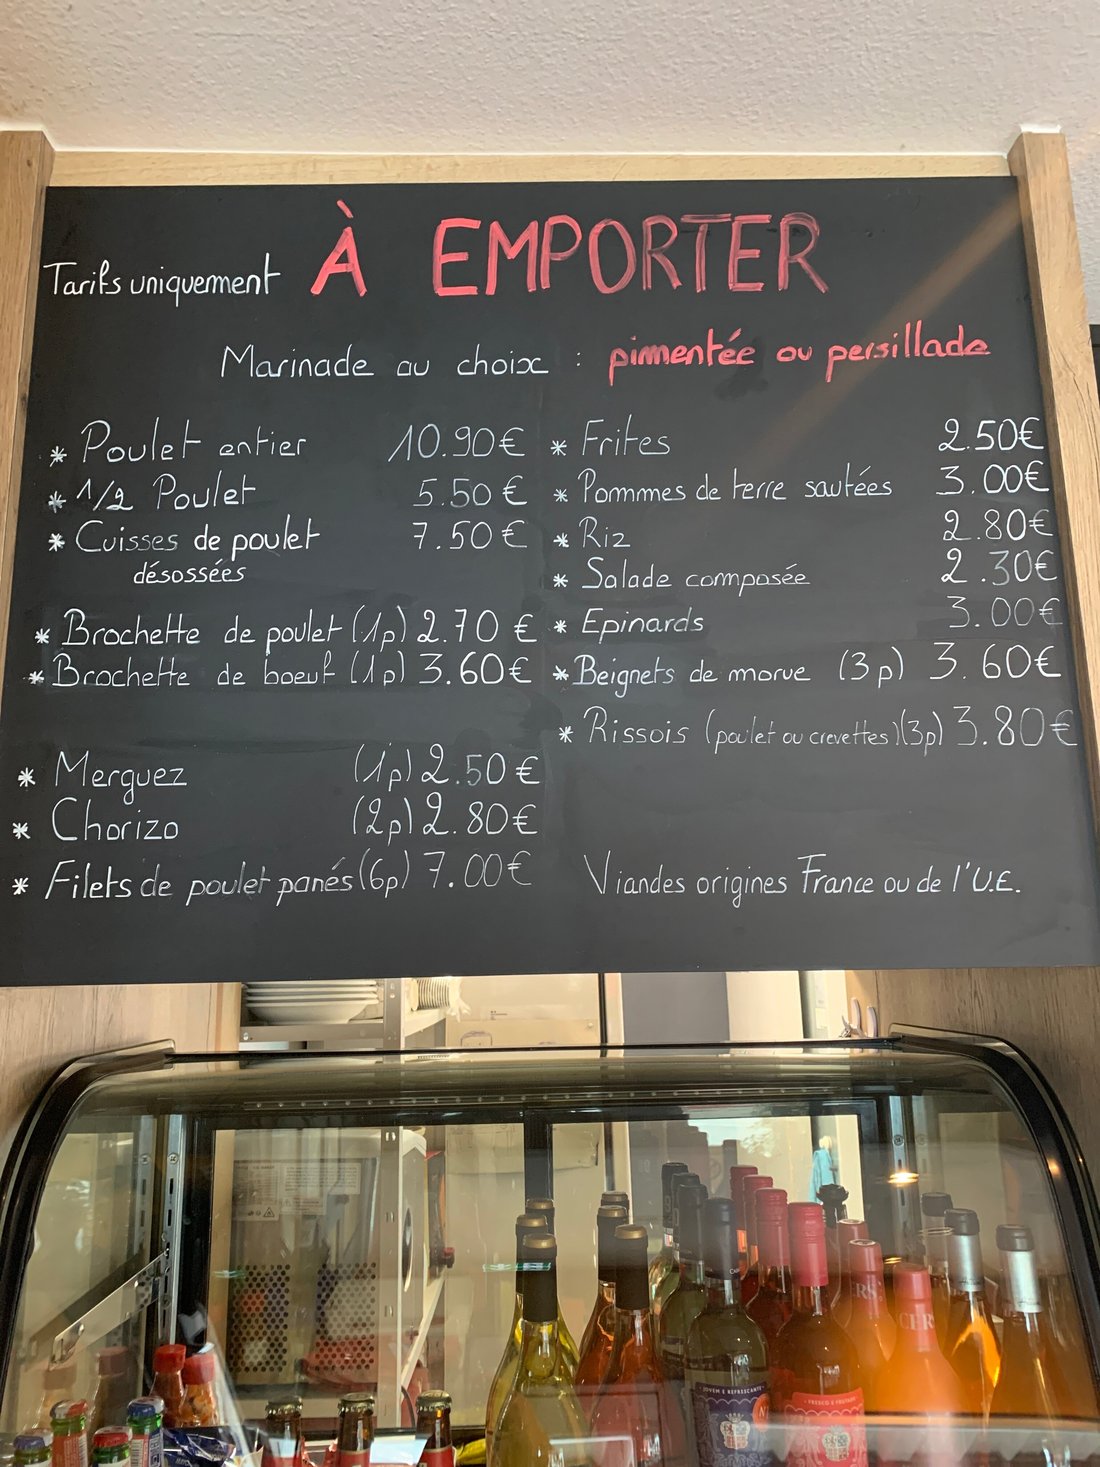 Tarifs uniquement À EMPORTER
Marinade au choix : pimentée ou persillade
* Poulet entier 10.90€
* 1/2 Poulet 5.50€
* Cuisses de poulet 7.50€
désossées
* Brochette de poulet (1p) 2.70€
* Brochette de boeuf (1p) 3.60€
* Merguez (1p) 2.50€
* Chorizo (2p) 2.80€
* Filets de poulet panés (6p) 7.00€
* Frites 2.50€
* Pommes de terre sautées 3.00€
* Riz 2.80€
* Salade composée 2.30€
* Epinards 3.00€
* Beignets de morue (3p) 3.60€
* Rissois (poulet ou crevettes) (3p) 3.80€
Viandes origines France ou de l'U.E.
JOVEM E REFRESCANTE
FRESCO E FRUTADO